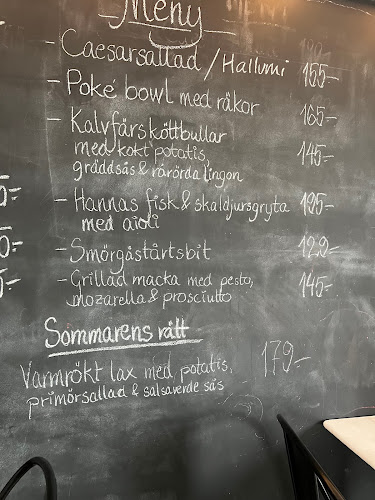 Meny
- Caesarsallad / Hallumi 155:-
- Poké bowl med räkor 165:-
- Kalvfärsköttbullar
med kokt potatis, 145:-
gräddsås & rårörda lingon
- Hannas fisk & skaldjursgryta 195:-
med aioli
- Smörgåstårtsbit 129:-
- Grillad macka med pesto, 145:-
mozarella & prosciutto
Sommarens rätt
Varmrökt lax med potatis, 179:-
primörsallad & salsaverde sås